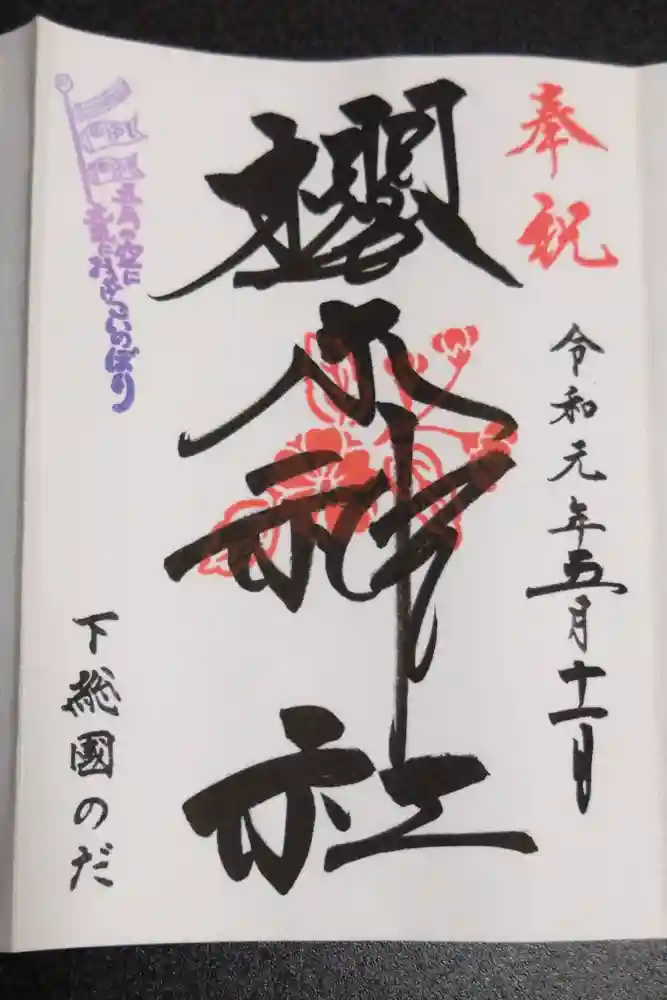 奉祝
令和元年五月十一日
櫻木神社
五月の空に
こいのぼり
下総國のだ